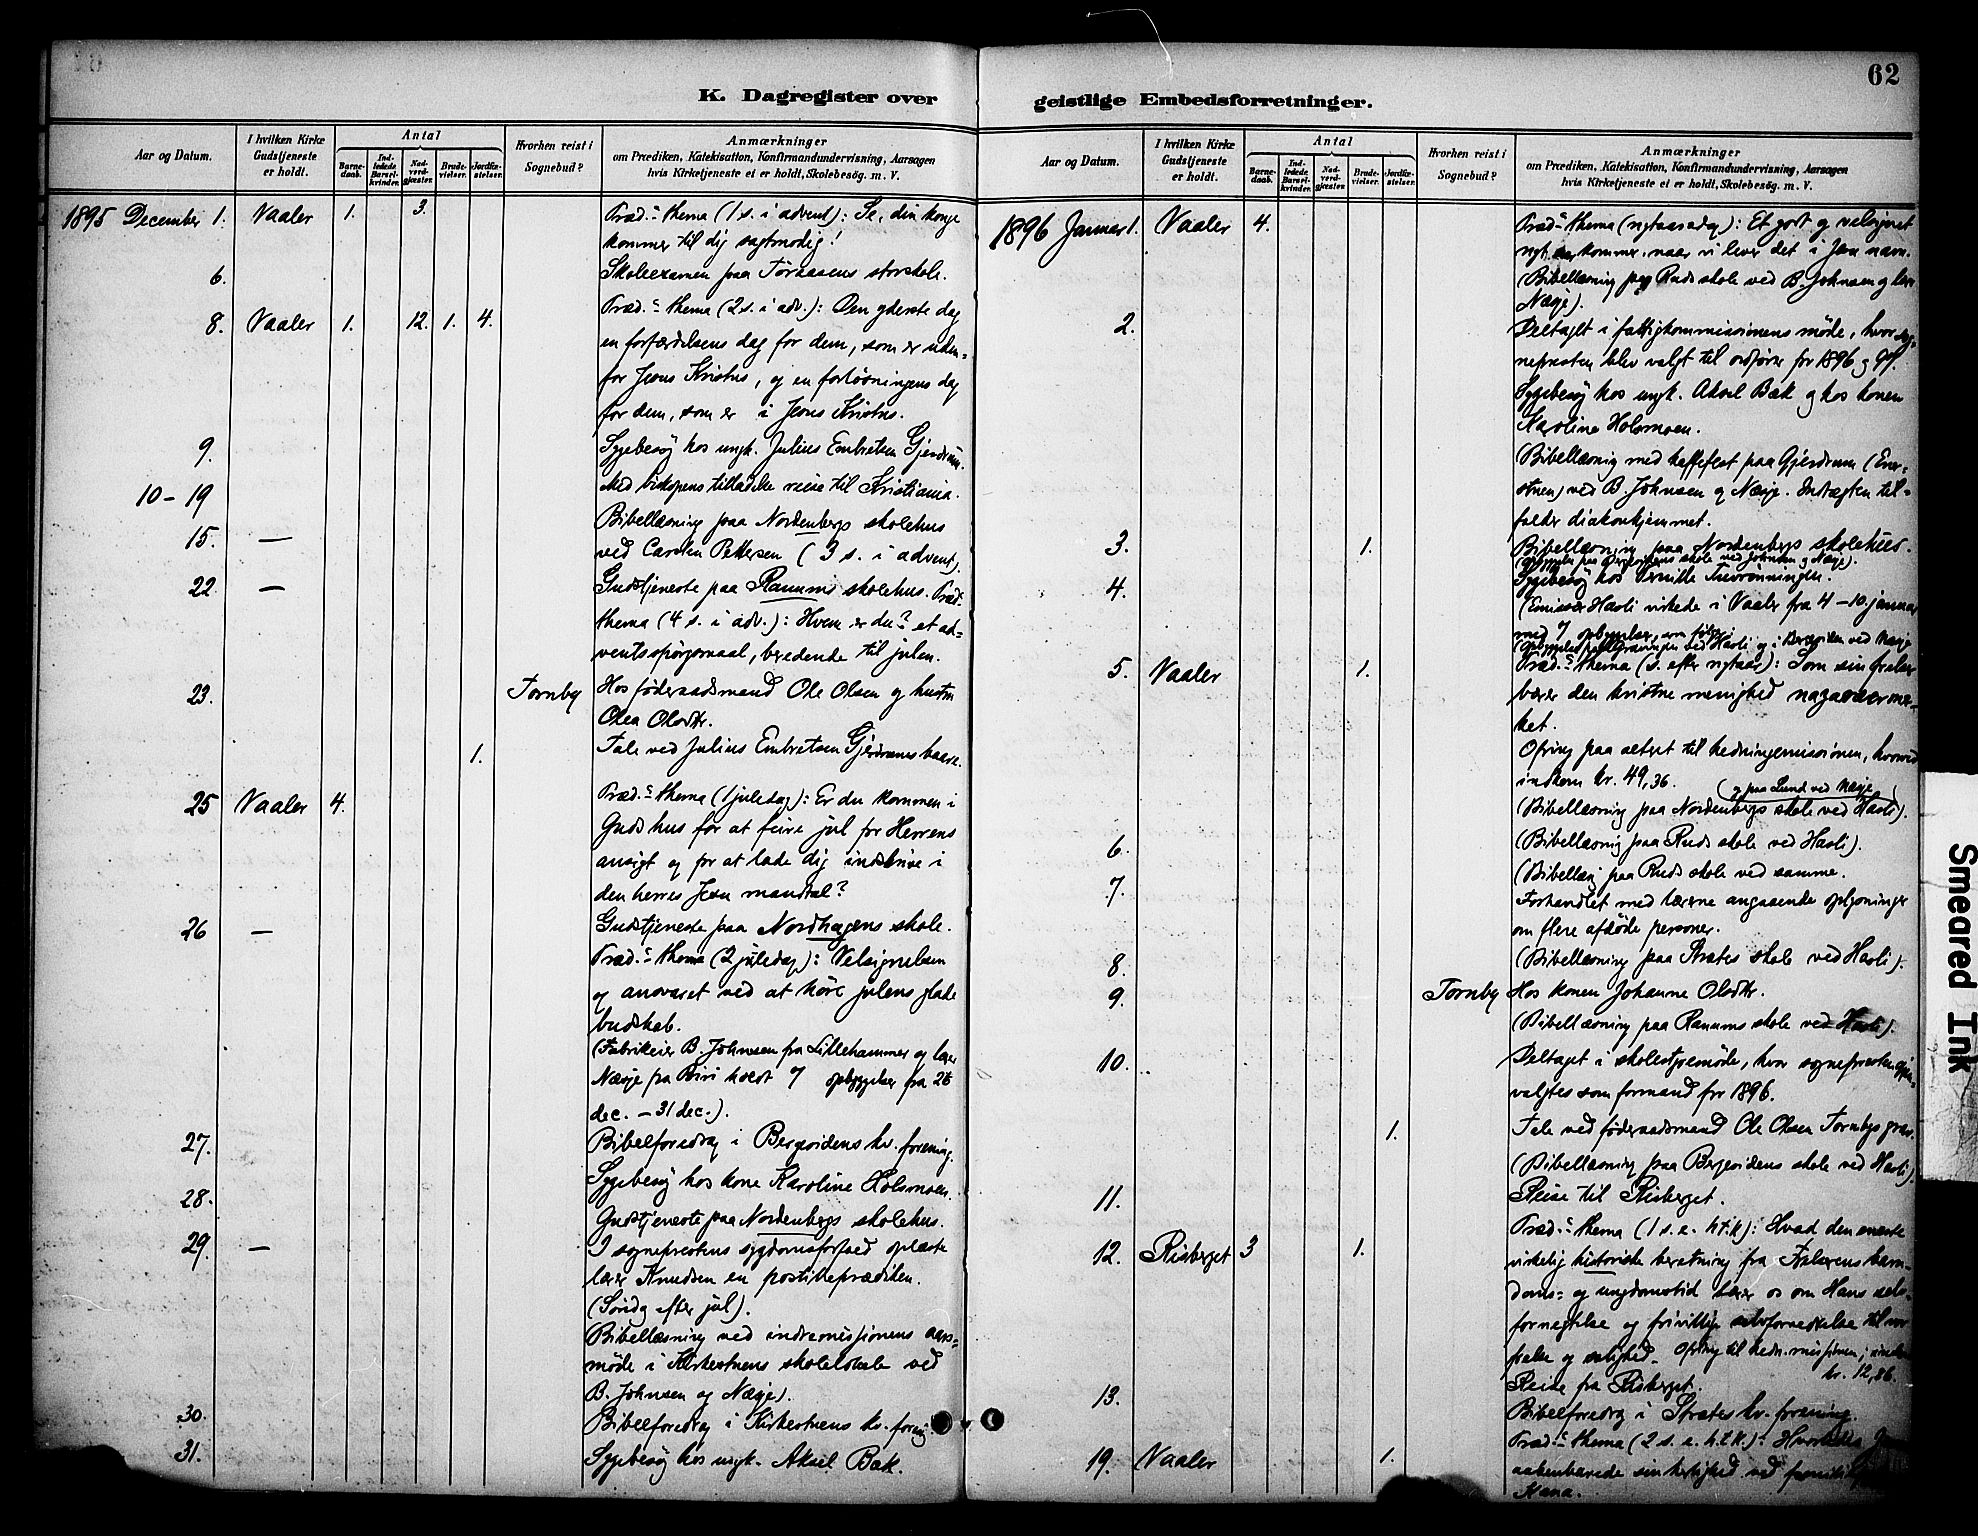 K. Dagregister over
Aar og Datum.
I hvilken Kirke Gudstjeneste er holdt.
Antal
Barnedaab.
Indledede Barselkvinder.
Nadverdgjæster.
Brudevielser.
Jordfæstelser.
Hvorhen reist i Sognebud?
Anmærkninger
om Prædiken, Katekisation, Konfirmandundervisning, Aarsagen
hvis Kirketjeneste ei er holdt, Skolebesøg. m. V.
1895 December 1. Vaaler 1. 3. Præd.- thema (1 s. i advent): Se, din konge
kommer til dig sagtmodig!
6. Skoleexamen paa Toraasens storskole.
8. Vaaler 1. 12. 1. 4. Præd.- thema (2 s. i adv.): Den yderste dag
en forfærdelsens dag for dem, som er uden-
for Jesus Kristus, og en forløsningens dag
for dem, som er i Jesus Kristus.
9. Sygebesøg hos ungk. Julius Embretsen Gjerdrum.
10-19 Med biskopens tilladelse reise til Kristiania.
15. — Bibellæsning paa Nordenbergs skolehus
ved Carsten Pettersen (3 s. i advent).
22 — Gudstjeneste paa Ranums skolehus. Præd.-
thema (4 s. i adv.): Hvem er du? et ad-
ventsspørgsmaal, beredende til julen.
23. Tornby Hos føderaadsmand Ole Olsen og hustru
Olea Olsdtr.
1. Tale ved Julius Embretsen Gjerdrums baare.
25 Vaaler 4. Præd.- thema (1 juledag): Er du kommen i
Guds hus for at feire jul for Herrens
ansigt og for at lade dig indskrive i
den herres Jesu mandtal?
26 — Gudstjeneste paa Nordhagens skole.
Præd.- thema (2 juledag): Velsignelsen
og ansvaret ved at høre julens glade
budskab.
(Fabrikeier B. Johnsen fra Lillehammer og lærer
Næsje fra Biri holdt 7 opbyggelser fra 26
dec. - 31 dec.).
27. Bibelforedrag i Bergesidens kv. forening.
28. Sygebesøg hos kone Karoline Holsmoen.
Gudstjeneste paa Nordenbergs skolehus.
29. — I sogneprestens sygdomsforfald oplæste
lærer Knudsen en postilleprædiken.
(Søndag efter jul).
Bibellæsning ved indremissionens aars-
møde i Kirkestuens skolelokale ved
B. Johnsen og Næsje).
30. Bibelforedrag i Kirkestuens kv. foreng
31. Sygebesøg hos ungk. Aksel Bæk.
geistlige Embedsforretninger.
62
Aar og Datum.
I hvilken Kirke Gudstjeneste er holdt.
Antal
Barnedaab.
Indledede Barselkvinder.
Nadverdgjæster.
Brudevielser.
Jordfæstelser.
Hvorhen reist i Sognebud?
Anmærkninger
om Prædiken, Katekisation, Konfirmandundervisning, Aarsagen
hvis Kirketjeneste ei er holdt, Skolebesøg. m. V.
1896 Januar 1. Vaaler 4. Præd- thema (nytaarsdag): Et godt og velsignet
nyt aar kommer, naar vi lever det i Jesu navn.
(Bibellæsning paa Ruds skole ved B. Johnsen og lærer
Næsje).
2. Deltaget i fattigkommissionens møde, hvor sog-
nepresten blev valgt til ordfører for 1896 og 97.
Sygebesøg hos ungk. Aksel Bæk og hos konen
Karoline Holsmoen.
(Bibellæsnig med kaffefest paa Gjerdrum (Ener-
stuen) ved B. Johnsen og Næsje. Indtægten til-
falder diakonhjemmet.
3. 1. Bibellæsning paa Nordenbergs skolehus.
4. Sygebesøg hos Pernille
(Emissær Hasli virkede i Vaaler fra 4 - 10. januar
med 7 opbyggelser, som følger:
5. Vaaler 1. Præd.- thema (s. efter nytaar): Som sin frelser
bærer den kristne menighed nazaræermær-
ket.
Ofring paa alteret til hedningemissionen, hvorved
indkom kr. 49,36.
(og paa Lund ved Næsje)
(Bibellæsning paa Nordenbergs skole ved Hasli).
6. (Bibellæsnig paa Ruds skole ved Hasli).
7. (Bibellæsg paa Ruds skole ved samme.
Forhandlet med lærerne angaaende oplysninger
om flere afdøde personer.
8. (Bibellæsning paa Strætes skole ved Hasli).
9. Tornby Hos konen Johanne Olsdtr.
(Bibellæsning paa Ranums skole ved Hasli).
10. Deltaget i skolestyremøde, hvor sognepresten gjen-
valgtes som formand for 1896.
1. Tale ved føderaadsmand Ole Olsen Tornbys grav.
(Bibellæsning paa Bergesidens skole ved Hasli)
11. Reise til Risberget.
12. Risberget 3 1. Præd.- thema (1 s. e. h.t.k.): Hvad den eneste
virkelig historiske beretning fra Frelserens barn-
doms- og ungdomstid lærer os om Hans selv-
fornegtelse og frivillige selvfornedrelse til vor
frelse og salighed. Ofring til hedn. missionen;
kr. 12,86.
13. Reise fra Risberget.
Bibelforedrag i Strætes kv. forening.
19. Vaaler 1. Præd.- thema (2 s. e. h.t.k.): Hvorledes
aabenbarede sin herlighed ved
Kana.
Smeared Ink